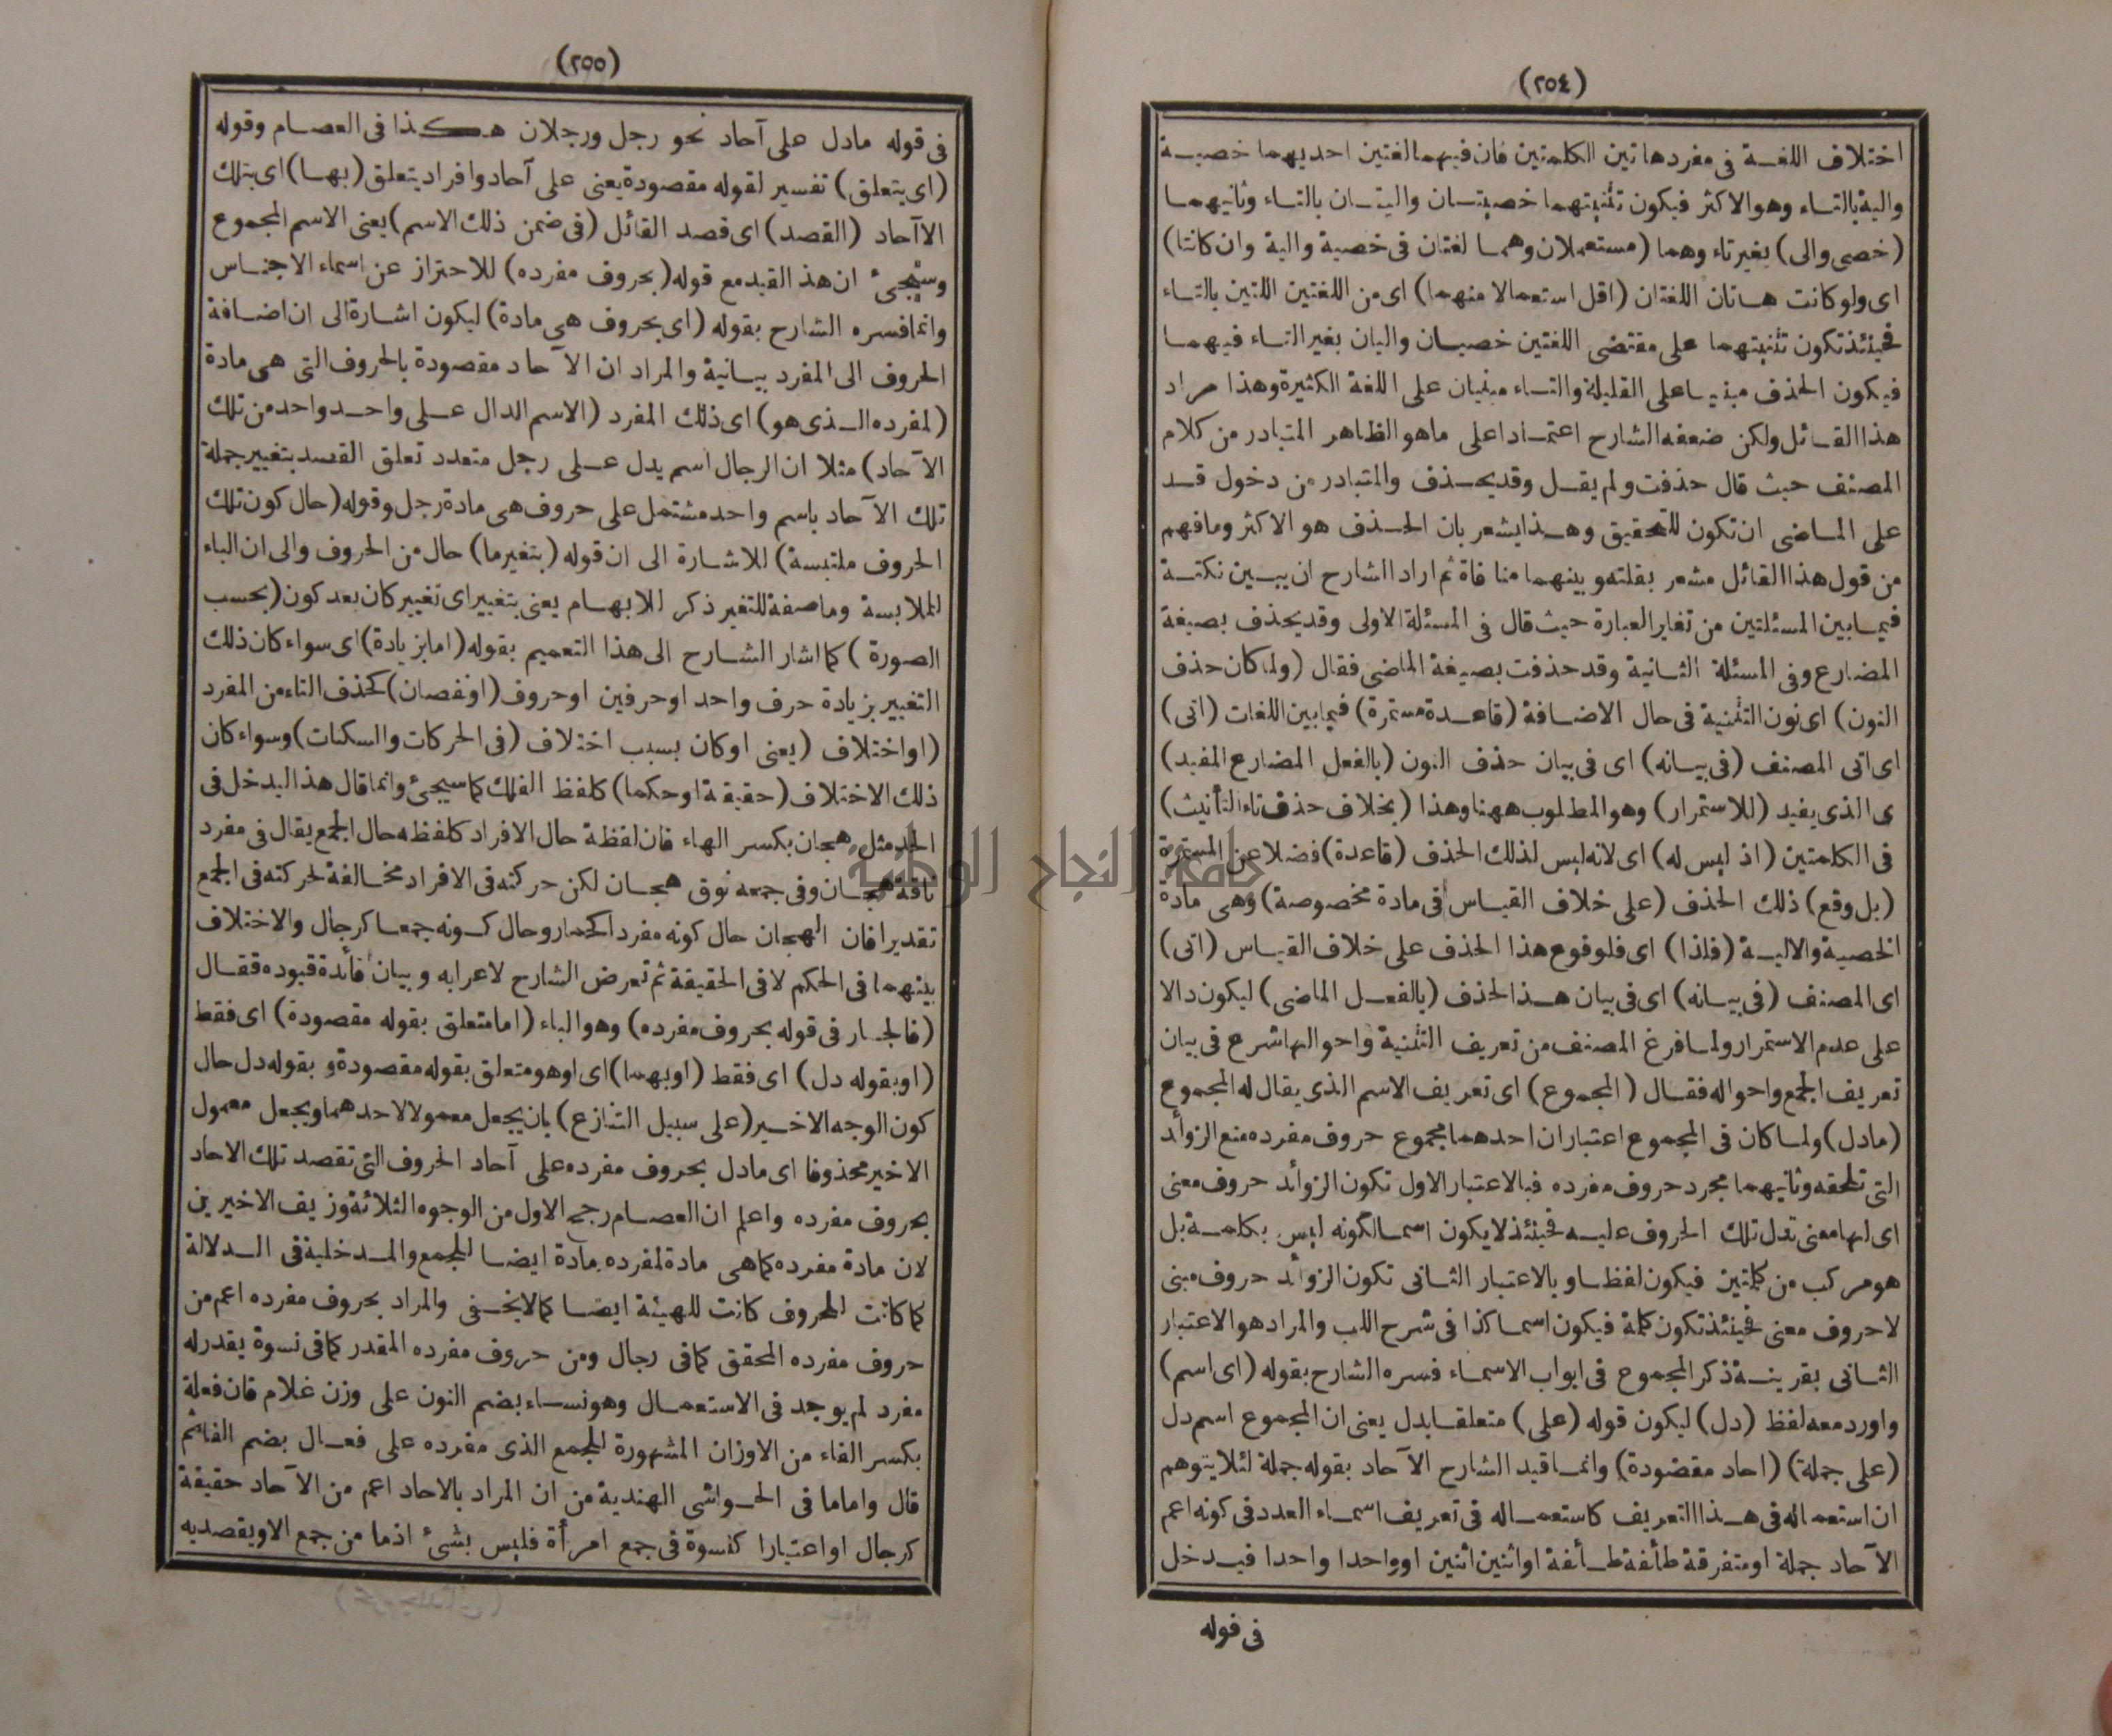 (٢٥٤)
اختلاف اللغة فى مفردهاتين الكلمتين فان فيهما لغتين احديهما خصية
والية بالتاء وهو الاكثر فيكون تثنيتهما خصيتان واليتان بالتاء وثانيهما
(خصى والى) بغير تاء وهما (مستعملان وهما لغتان فى خصية والية وان كانتا)
اى ولو كانت هاتان اللغتان (اقل استعمالا منهما) اى من اللغتين اللتين بالتاء
فحينئذ تكون تثنيتهما على مقتضى اللغتين خصيان واليان بغير التاء فيهما
فيكون الحذف مبنيا على القليلة والتاء مبنيان على اللغة الكثيرة وهذا مراد
هذا القائل ولكن ضعفه الشارح اعتمادا على ماهو الظاهر المتبادر من كلام
المصنف حيث قال حذفت ولم يقل وقد يحذف والمتبادر من دخول قد
على الماضى ان تكون للتحقيق وهذا يشعر بان الحذف هو الاكثر وما فهم
من قول هذا القائل مشعر بقلته وبينهما منافاة ثم اراد الشارح ان يبين نكتة
فيما بين المسئلتين من تغاير العبارة حيث قال فى المسئلة الاولى وقد يحذف بصيغة
المضارع وفى المسئلة الثانية وقد حذفت بصيغة الماضى فقال (ولما كان حذف
النون) اى نون التثنية فى حال الاضافة (قاعدة مستمرة) فيما بين اللغات (اتى)
اى اتى المصنف (فى بيانه) اى فى بيان حذف النون (بالفعل المضارع المفيد)
ى الذى يفيد (للاستمرار) وهو المطلوب ههنا وهذا (بخلاف حذف تاء التأنيث)
فى الكلمتين (اذ ليس له) اى لانه ليس لذلك الحذف (قاعدة) فضلا عن المستمرة
(بل وقع) ذلك الحذف (على خلاف القياس فى مادة مخصوصة) وهى مادة
الخصية والالية (فلذا) اى فلوقوع هذا الحذف على خلاف القياس (اتى)
اى المصنف (فى بيانه) اى فى بيان هذا الحذف (بالفعل الماضى) ليكون دالا
على عدم الاستمرار ولما فرغ المصنف من تعريف التثنية واحوالها شرع فى بيان
تعريف الجمع واحواله فقال (المجموع) اى تعريف الاسم الذى يقال له المجموع
(مادل) ولما كان فى المجموع اعتباران احدهما مجموع حروف مفرده مع الزوائد
التى تلحقه وثانيهما مجرد حروف مفرده فبالاعتبار الاول تكون الزوائد حروف معنى
اى لها معنى تدل تلك الحروف عليه فحينئذ لا يكون اسما لكونه ليس بكلمة بل
هو مركب من كلمتين فيكون لفظا وبالاعتبار الثانى تكون الزوائد حروف مبنى
لا حروف معنى فحينئذ تكون كلمة فيكون اسما كذا فى شرح اللب والمراد هو الاعتبار
الثانى بقرينة ذكر المجموع فى ابواب الاسماء فسره الشارح بقوله (اى اسم)
واورد معه لفظ (دل) ليكون قوله (على) متعلقا بدل يعنى ان المجموع اسم دل
(على جملة) (احاد مقصودة) وانما قيد الشارح الآحاد بقوله جملة لئلا يتوهم
ان استعماله فى هذا التعريف كاستعماله فى تعريف اسماء العدد فى كونه اعم
الآحاد جملة او متفرقة طائفة طائفة او اثنين اثنين او واحدا واحدا فيدخل
فى قوله
(٢٥٥)
فى قوله مادل على آحاد نحو رجل ورجلان هكذا فى العصام وقوله
(اى يتعلق) تفسير لقوله مقصودة يعنى على آحاد وافراد يتعلق (بها) اى بتلك
الاآحاد (القصد) اى قصد القائل (فى ضمن ذلك الاسم) يعنى الاسم المجموع
وسيجئ ان هذا القيد مع قوله (بحروف مفرده) للاحتراز عن اسماء الاجناس
وانما فسره الشارح بقوله (اى بحروف هى مادة) ليكون اشارة الى ان اضافة
الحروف الى المفرد بيانية والمراد ان الآحاد مقصودة بالحروف التى هى مادة
(لمفرده الذى هو) اى ذلك المفرد (الاسم الدال على واحد واحد من تلك
الآحاد) مثلا ان الرجال اسم يدل على رجل متعدد تعلق القصد بتغيير جملة
تلك الآحاد باسم واحد مشتمل على حروف هى مادة رجل وقوله (حال كون تلك
الحروف ملتبسة) للاشارة الى ان قوله (بتغير ما) حال من الحروف والى ان الباء
للملابسة وما صفة للتغير ذكر للابهام يعنى بتغيير اى تغيير كان بعد كون (بحسب
الصورة) كما اشار الشارح الى هذا التعميم بقوله (اما بزيادة) اى سواء كان ذلك
التغيير بزيادة حرف واحد او حرفين او حروف (او نفصان) كحذف التاء من المفرد
(او اختلاف (يعنى او كان بسبب اختلاف (فى الحركات والسكنات) وسواء كان
ذلك الاختلاف (حقيقة او حكما) كلفظ الفلك كما سيجئ وانما قال هذا ليدخل فى
الحد مثل هجان بكسر الهاء فان لفظة حال الافراد كلفظه حال الجمع يقال فى مفرد
ناقة هجان وفى جمعه نوق هجان لكن حركته فى الافراد مخالفة لحركته فى الجمع
تقديرا فان الهجان حال كونه مفردا كحمار وحال كونه جمعا كرجال والاختلاف
بينهما فى الحكم لا فى الحقيقة ثم تعرض الشارح لاعرابه وبيان فائدة قيوده فقال
(فالجار فى قوله بحروف مفرده) وهو الباء (اما متعلق بقوله مقصودة) اى فقط
(او بقوله دل) اى فقط (او بهما) اى او هو متعلق بقوله مقصودة و بقوله دل حال
كون الوجه الاخير (على سبيل التنازع) بان يجعل معمولا لاحدهما ويجعل معمول
الاخير محذوفا اى مادل بحروف مفرده على آحاد الحروف التى تقصد تلك الاحاد
بحروف مفرده واعلم ان العصام رجح الاول من الوجوه الثلاثة وزيف الاخيرين
لان مادة مفرده كما هى مادة لمفرده مادة ايضا للجمع والمدخلية فى الدلالة
كما كانت للحروف كانت للهيئة ايضا كما لا يخفى والمراد بحروف مفرده اعم من
حروف مفرده المحقق كما فى رجال ومن حروف مفرده المقدر كما فى نسوة يقدر له
مفرد لم يوجد فى الاستعمال وهو نساء بضم النون على وزن غلام فان فعلة
بكسر الفاء من الاوزان المشهورة للجمع الذى مفرده على فعال بضم الفاء ثم
قال واما ما فى الحواشى الهندية من ان المراد بالاحاد اعم من الآحاد حقيقة
كرجال او اعتبارا كنسوة فى جمع امرأة فليس بشئ اذ ما من جمع الا ويقصد به
جامعة النجاح الوطنية